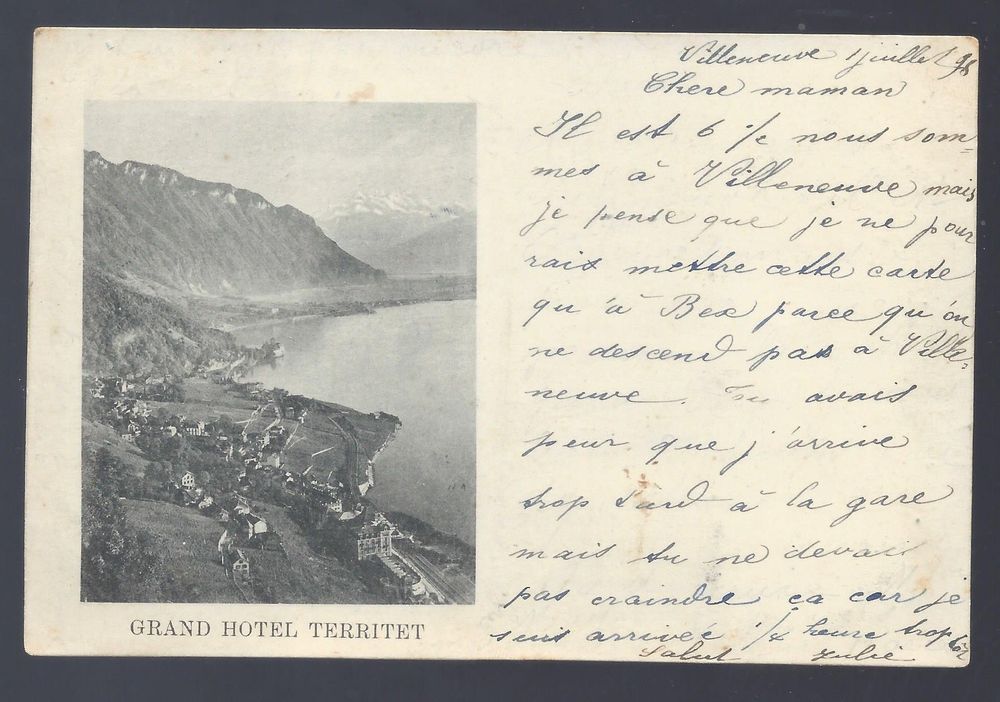 GRAND HOTEL TERRITET
Villeneuve 1 juillet 98
Chere maman
Il est 6 ½ nous som=
mes à Villeneuve mais
je pense que je ne pour
rais mettre cette carte
qu'à Bex parce qu'on
ne descend pas à Ville=
neuve. Tu avais
peur que j'arrive
trop tard à la gare
mais tu ne devais
pas craindre ca car je
suis arrivée ¼ heure trop tôt
Salut Julie